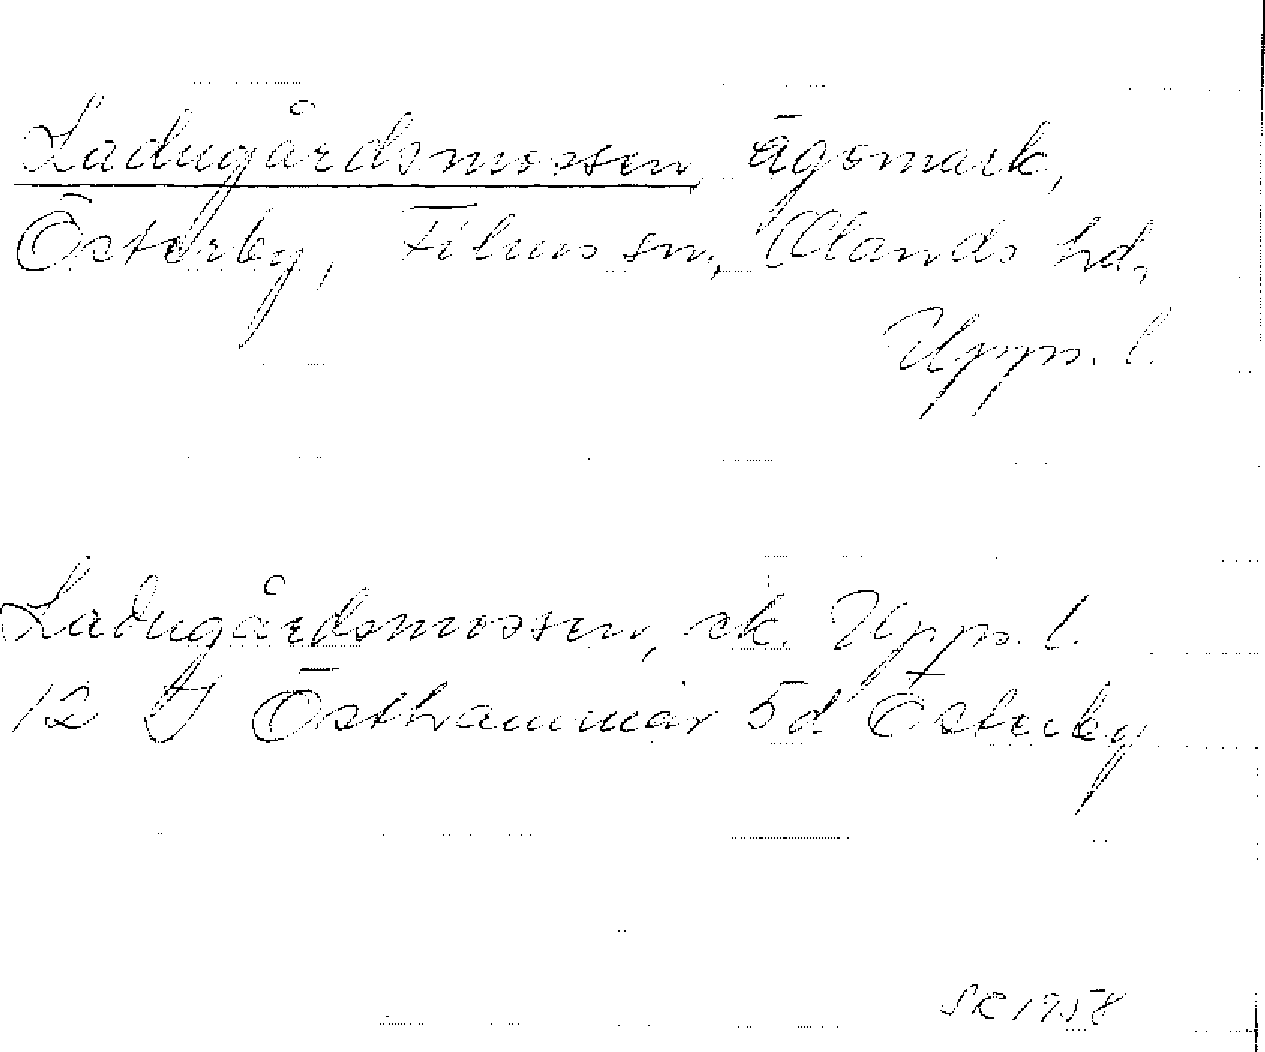 Ladugårdsmossen, ägomark,
Österby, Films sn, Olands hd,
Upps. l.
Ladugårdsmossen, ek. Upps. l.
12 I Östhammar 5d Österby
SR 1958